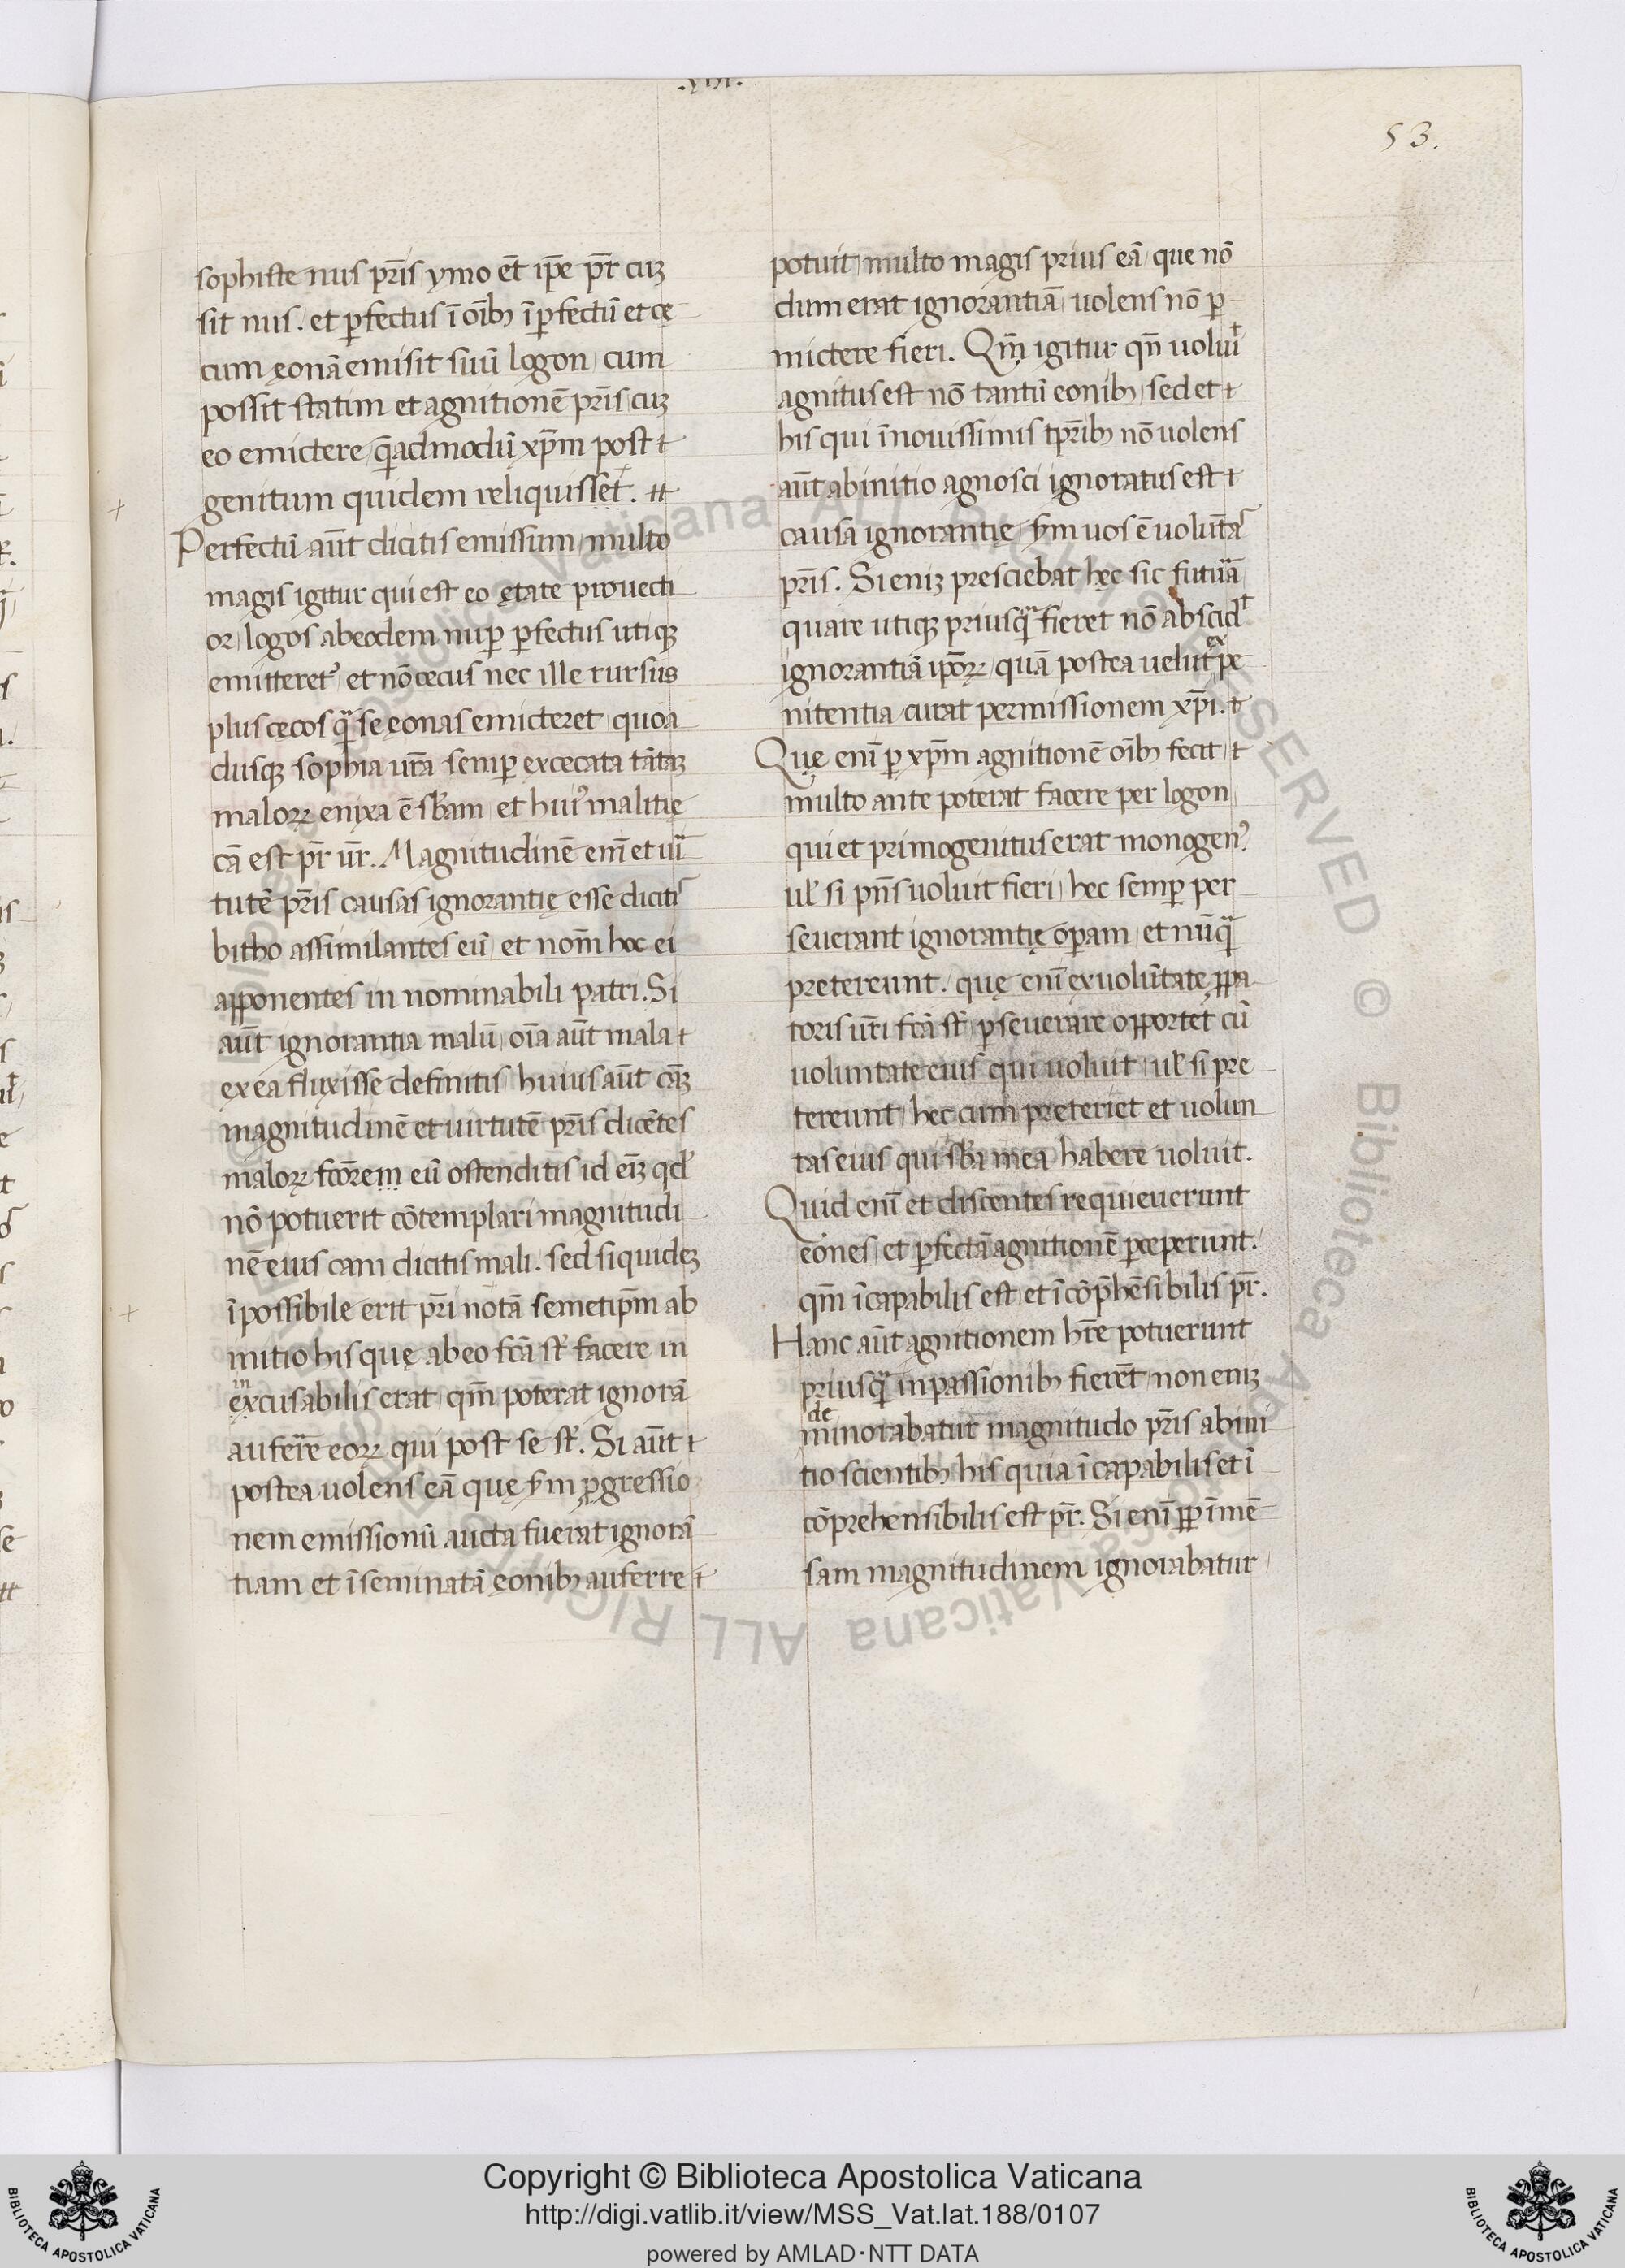 .xiii.
53.
sophiste nus pr̄is ymo et̄ ip̄e pr̄t cuꝫ
sit nus. et ꝑfectus ī oīb; īꝑfectū et cę
cum ęonā emisit suū logon, cum
possit statim et agnitionē pr̄is cuꝫ
eo emictere, q̄admodū xp̄m post
genitum quidem reliquisset.
Perfectū aūt dicitis emissum, multo
magis igitur qui est eo ętate prouecti
or, logos abeodem nuꝑ ꝑfectus utiqꝫ
emitteret᷒, et nō cecus nec ille rursus
plus cecos q̄ se ęonas emicteret quoa
dusqꝫ sophia ur̄a semꝑ excecata tātaꝫ
maloꝝ enixa ē sb̄am, et hui᷒ malitię
cā est pr̄ ur̄. Magnitudinē eni᷒ et ui
tutē pr̄is causas ignorantię esse diciti
bitho assimilantes eū, et nom̄ hoc ei
apponentes in nominabili patri. Si
aūt ignorantia malū, oīa aūt mala
ex ea fluxisse definitis, huius aūt cāꝫ
magnitudinē et uirtutē pr̄is dicētes
maloꝝ fc̄orem eū ostenditis id eiꝫ qd᷒
nō potuerit cōtemplari magnitudi
nē eius cam dicitis mali. sed siquidēꝫ
īpossibile erit pr̄i nōtā semetip̄m ab
initio his quę ab eo fc̄ā st᷒ facere in
in
excusabilis erat, qm̄ poterat ignorā
auferre eoꝝ qui post se st᷒. Si aūt
postea uolens eā quę sm̄ ꝓgressio
nem emissionū aucta fuerat ignorā
tiam et īseminatā ęonib; auferre
potuit, multo magis prius eā, que nō
dum erat ignorantiā uolens nō ꝑ
mictere fieri. Qm̄ igitur qn̄ uoluit
agnitus est nō tantū eonib; sed et
his qui ī nouissimis tpr̄ib; nō uolens
aūt abinitio agnosci ignoratus est
causa ignorantię, sm̄ uos ē uolūta
pr̄is. Si eniꝫ presciebat hęc sic futura
quare utiqꝫ priusq̄ fieret nō abscidt
ex
ignorantiā ipōꝝ, quā postea uelut pe
nitentia curat permissionem xp̄i.
Quę eni᷒ ꝑ xp̄m agnitionē oīb; fecit,
multo ante poterat facere per logon,
qui et primogenitus erat monogen᷒.
ul᷒ si pn̄s uoluit fieri, hec semꝑ per
seuerant ignorantię oꝑam, et nūq̄
pretereunt. quę eni᷒ ex uolūtate ꝓpa
toris ur̄i fc̄ā st᷒ ꝑseuerare opportet cū
uoluntate eius qui uoluit, ul᷒ si pre
tereunt, hec cum preteriet et uolun
tas eius qui sb̄a mea habere uoluit.
Quid eni᷒ et discentes requieuerunt
eones, et ꝑfectā agnitionē ꝑceperunt.
qm̄ īcapabilis est, et īcōp̄hēsibilis pr̄.
Hanc aūt agnitionem hr̄e potuerunt
priusq̄ in passionib; fieret̄, non eniꝫ
de
minorabatur magnitudo pr̄is abini
tio scientib; his quia īcapabilis et ī
cōprehensibilis est pr̄. Si eni᷒ ꝓp īmē
sam magnitudinem ignorabatur
Copyright © Biblioteca Apostolica Vaticana
http://digi.vatlib.it/view/MSS_Vat.lat.188/0107
powered by AMLAD·NTT DATA